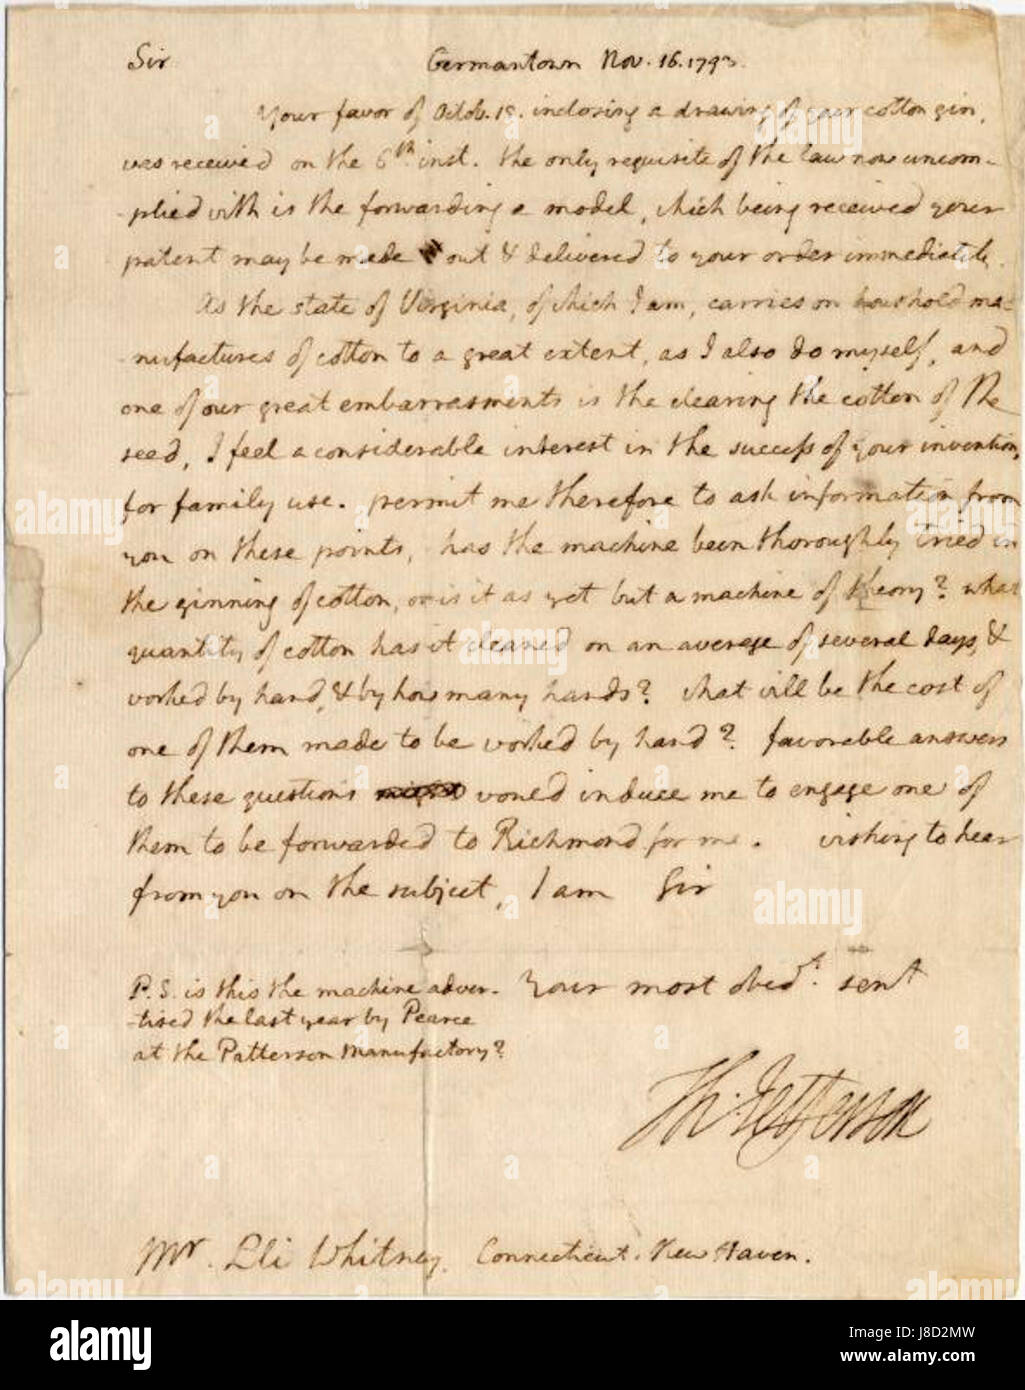 Sir Germantown Nov. 16. 1793.
Your favor of Octob. 15. inclosing a drawing of your cotton gin,
was received on the 6th inst. the only requisite of the law now uncom-
plied with is the forwarding a model, which being received your
patent may be made out & delivered to your order immediately.
As the state of Virginia, of which I am, carries on houshold ma-
nufactures of cotton to a great extent, as I also do myself, and
one of our great embarrasments is the clearing the cotton of the
seed, I feel a considerable interest in the success of your invention,
for family use. permit me therefore to ask information from
you on these points, has the machine been thoroughly tried in
the ginning of cotton, or is it as yet but a machine of theory? what
quantity of cotton has it cleaned on an average of several days, &
worked by hand, & by how many hands? what will be the cost of
one of them made to be worked by hand? favorable answers
to these questions would induce me to engage one of
them to be forwarded to Richmond for me. wishing to hear
from you on the subject, I am Sir
Your most obedt. servt
P.S. is this the machine adver-
tised the last year by Pearce
at the Patterson manufactory?
Th: Jefferson
Mr. Eli Whitney. Connecticut. New Haven.
alamy
Image ID: J8D2MW
www.alamy.com